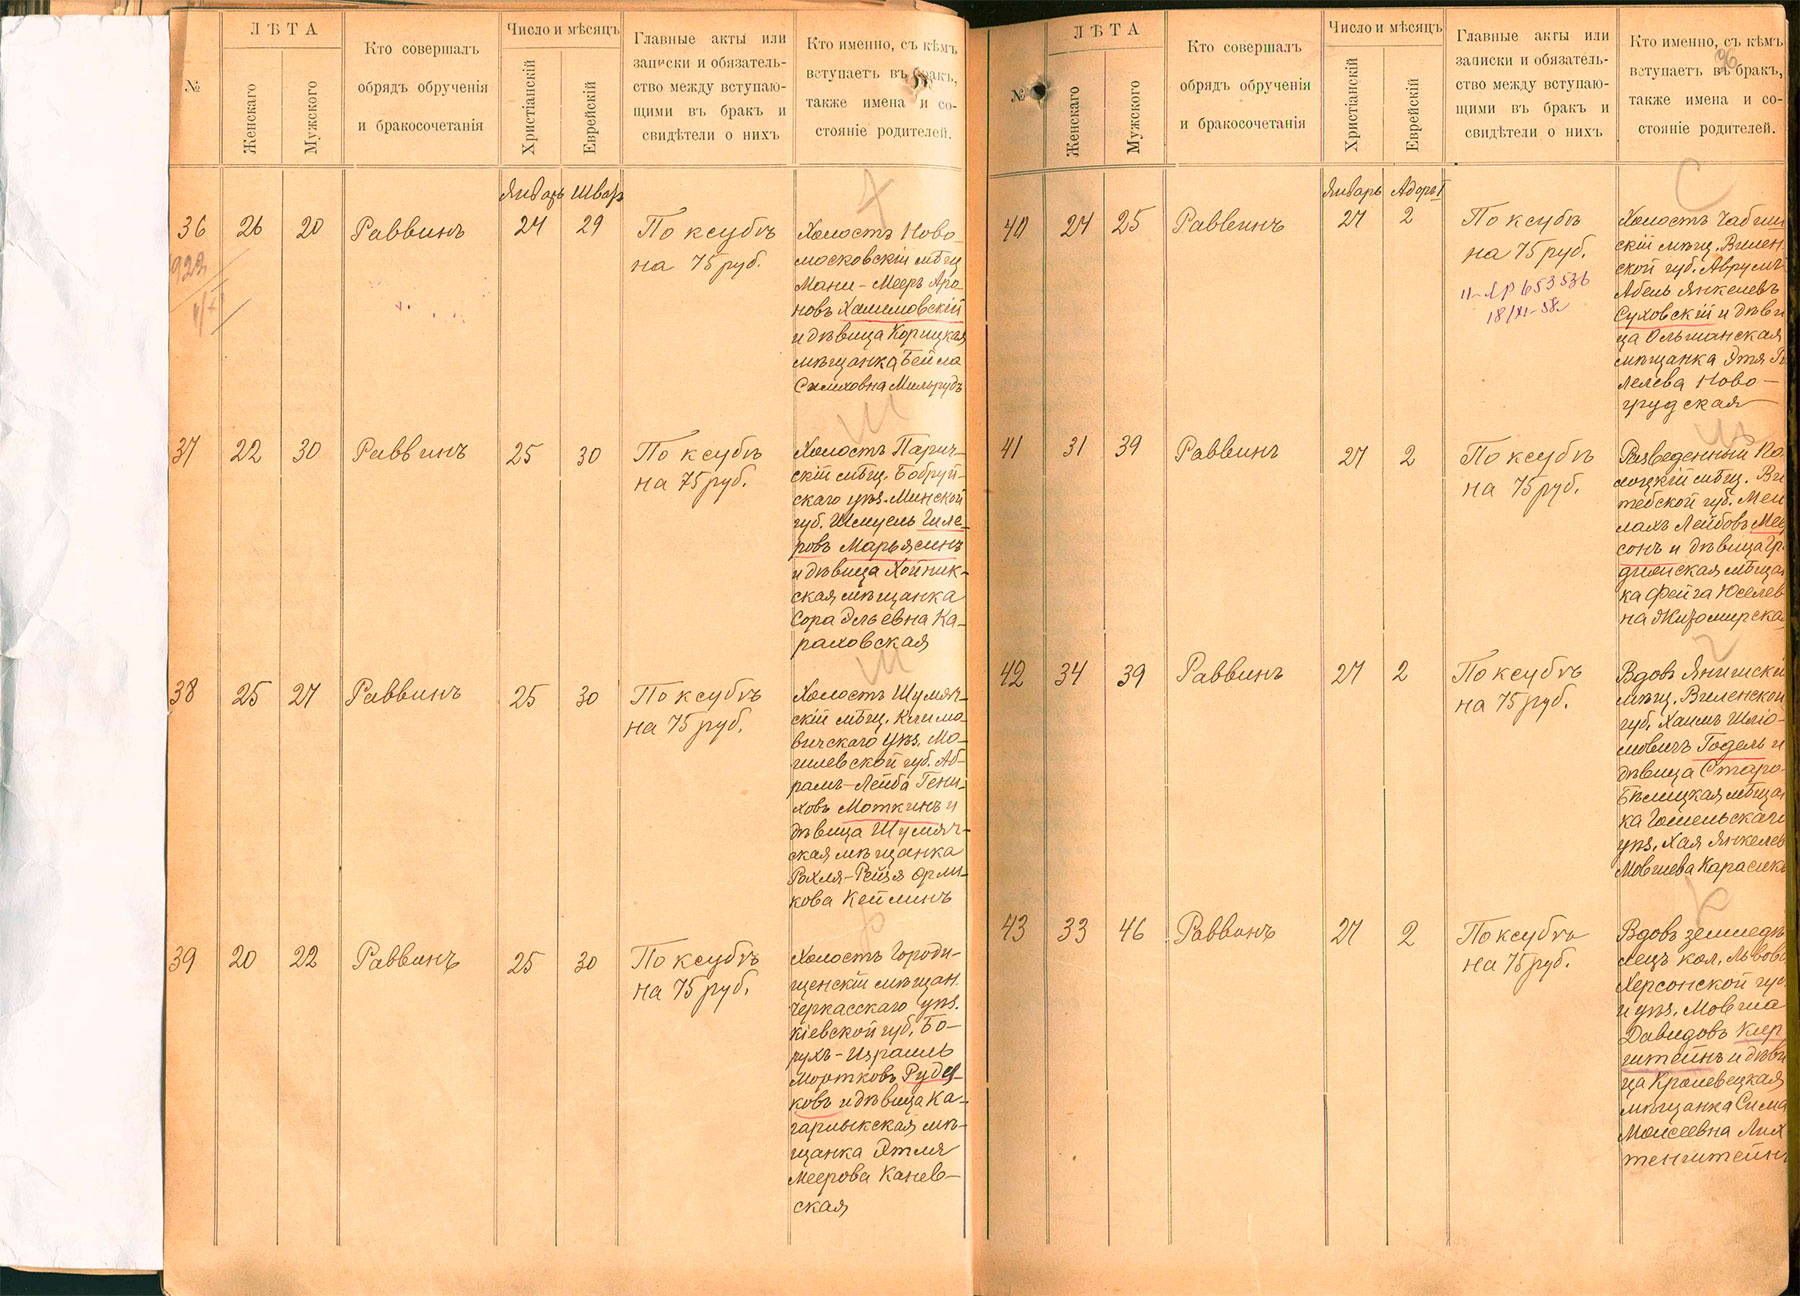 №
ЛѢТА
Женскаго
Мужского
Кто совершалъ
обрядъ обрученія
и бракосочетанія
Число и мѣсяцъ
Христіанскій
Еврейскій
Главные акты или
записки и обязатель-
ство между вступаю-
щими въ бракъ и
свидѣтели о нихъ
Кто именно, съ кѣмъ
вступаетъ въ бракъ,
также имена и со-
стояніе родителей.
Январь Шватъ
36 26 20 Раввинъ 24 29
По ксубѣ
на 75 руб.
Холостъ Ново-
московскій мѣщ
Мани-Мееръ Аро-
новъ Хашмовскій
и дѣвица Корицкая
мѣщанка Бейла
Мильрудъ
37 22 30 Раввинъ 25 30
По ксубѣ
на 75 руб.
Холостъ Парич-
скій мѣщ. Бобруй-
скаго уѣз. Минской
губ. Шмуель Гиле-
ровъ Марьясинъ
и дѣвица Хойник-
ская мѣщанка
Сора Эльевна Ка-
раховская
38 25 27 Раввинъ 25 30
По ксубѣ
на 75 руб.
Холостъ Шумяч-
скій мѣщ. Климо-
вичскаго уѣз. Мо-
гилевской губ. Аб-
рамъ-Лейба Гени-
ховъ Моткинъ и
дѣвица Шумяч-
ская мѣщанка
Рохля-Рейзя Орли-
кова Кейлинъ
39 20 22 Раввинъ 25 30
По ксубѣ
на 75 руб.
Холостъ Городи-
щенскій мѣщан.
Черкасскаго уѣз.
Кіевской губ. Бо-
рухъ-Израиль
Мортковъ Руди-
ковъ и дѣвица Ка-
гарлыкская мѣ-
щанка Этля
Меерова Канев-
ская
№
ЛѢТА
Женскаго
Мужского
Кто совершалъ
обрядъ обрученія
и бракосочетанія
Число и мѣсяцъ
Христіанскій
Еврейскій
Главные акты или
записки и обязатель-
ство между вступаю-
щими въ бракъ и
свидѣтели о нихъ
Кто именно, съ кѣмъ
вступаетъ въ бракъ,
также имена и со-
стояніе родителей.
96
Январь Адоръ I
40 24 25 Раввинъ 27 2
По ксубѣ
на 75 руб.
II-ЯР 653536
18/XI-58г.
Холостъ
скій мѣщ. Вилен
ской губ. Аврумъ
Абель Янкелевъ
Суховскій и дѣви
ца Ольшанская
мѣщанка Этя Ги
лелева Ново-
грудская
41 31 39 Раввинъ 27 2
По ксубѣ
на 75 руб.
Разведенный По
лоцкій мѣщ. Ви
тебской губ. Меи
лахъ Лейбовъ Меер
сонъ и дѣвица Гро
дненская мѣщан
ка Фейга Юселев
на Житомирская
42 34 39 Раввинъ 27 2
По ксубѣ
на 75 руб.
Вдовъ Янишскій
мѣщ. Виленской
губ. Хаимъ Шло-
мовичъ Годель и
дѣвица Старо-
Бѣлицкая мѣщан
ка Гомельскаго
уѣз. Хая Янкелев
Мовшева Карасикъ
43 33 46 Раввинъ 27 2
По ксубѣ
на 75 руб.
Вдовъ земледѣ
лецъ кол. Львова
Херсонской губ
и уѣз. Мовша
Давидовъ Кир
штейнъ и дѣви
ца Кролевецкая
мѣщанка Сима
Моисеевна Лих
тенштейнъ